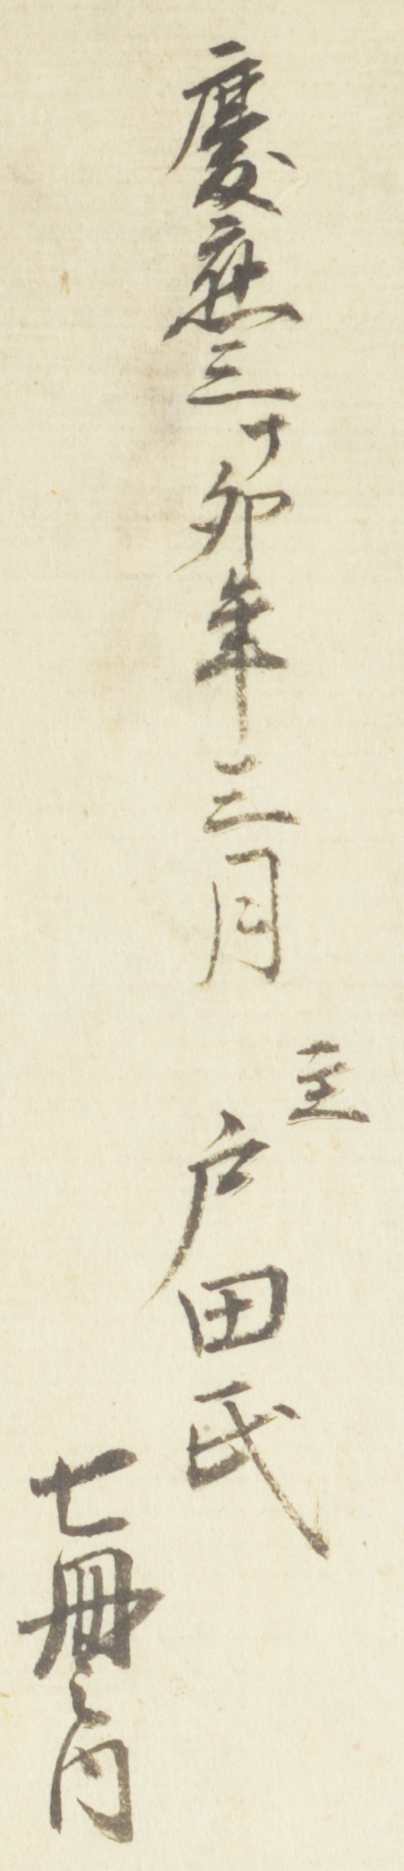 慶應三丁卯年三月
主
戸田氏
七冊之内